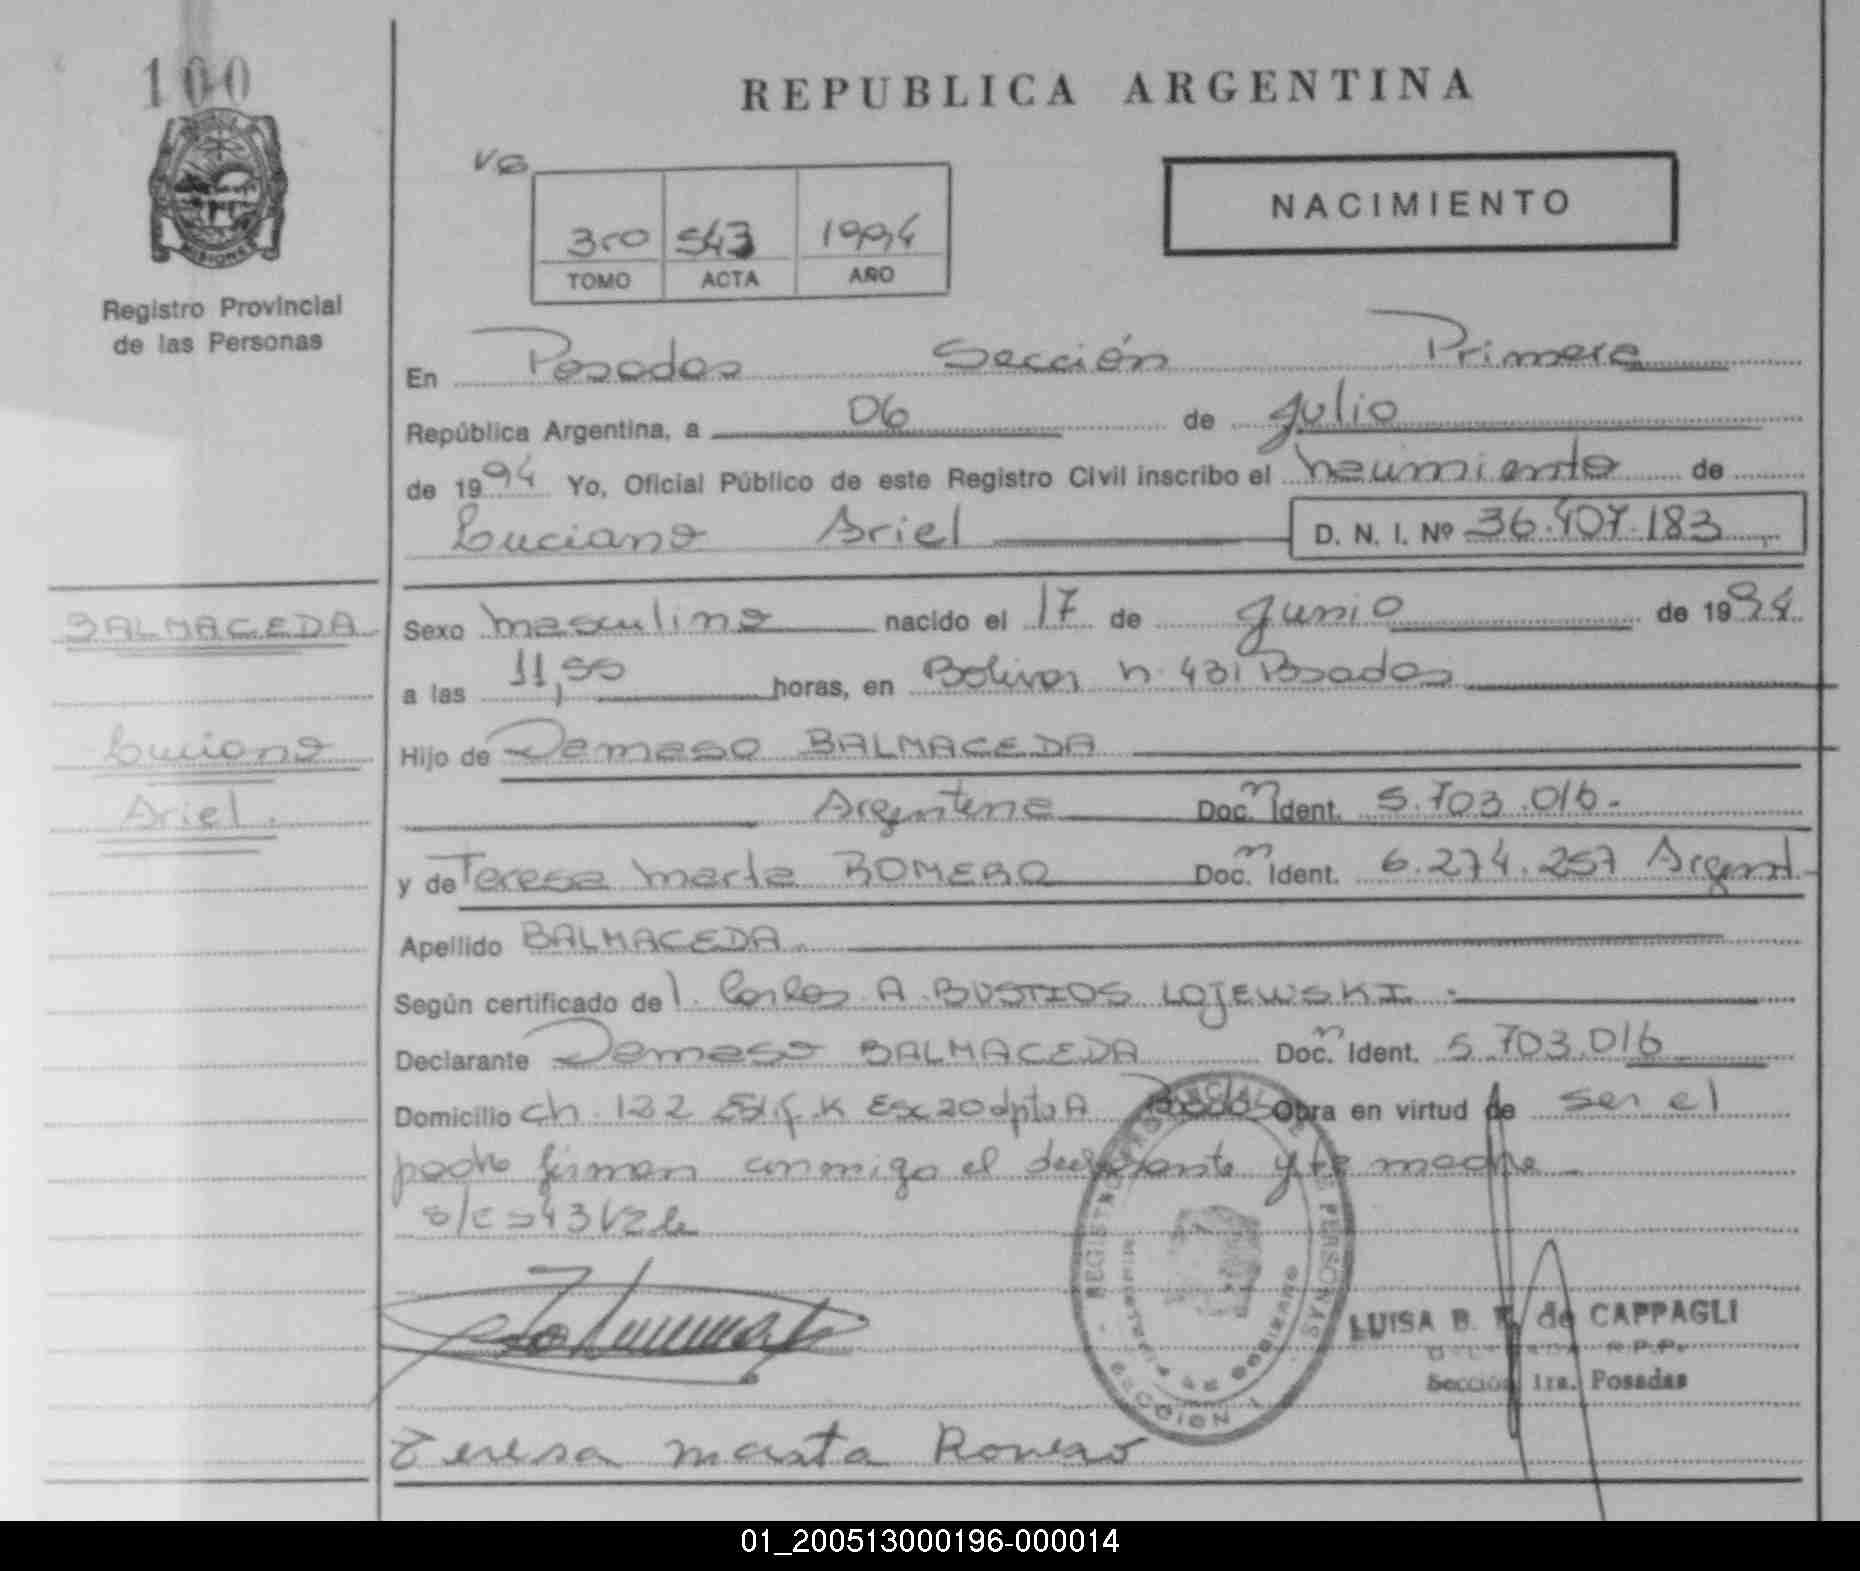 100
REPUBLICA ARGENTINA
VB
3ro 543 1994
TOMO ACTA AÑO
NACIMIENTO
MISIONES
Registro Provincial
de las Personas
En Posadas Sección Primera
República Argentina, a 06 de Julio
de 1994 Yo, Oficial Público de este Registro Civil inscribo el nacimiento de
Luciano Ariel D. N. I. Nº 36.407.183
BALMACEDA
Sexo masculino nacido el 17 de Junio de 1994.
a las 11,55 horas, en Bolivar n. 431 Posadas
Luciano
Ariel.
Hijo de Damaso BALMACEDA
Argentina Doc. Ident. 5.703.016.
y de Teresa Marta ROMERO Doc. Ident. 6.274.257 Argent.
Apellido BALMACEDA
Según certificado de Carlos A. BUSTIOS LOJEWSKI.
Declarante Damaso BALMACEDA Doc. Ident. 5.703.016
Domicilio Ch. 122 Edif. K Esc 20 dpto A Posadas Obra en virtud de ser el
padre firman conmigo el declarante y la madre
REGISTRO PROVINCIAL DE PERSONAS
Ministerio de Gobierno
SECCION 1
LUISA B. de CAPPAGLI
R.P.P.
Sección 1ra. Posadas
Teresa Marta Romero
01_200513000196-000014